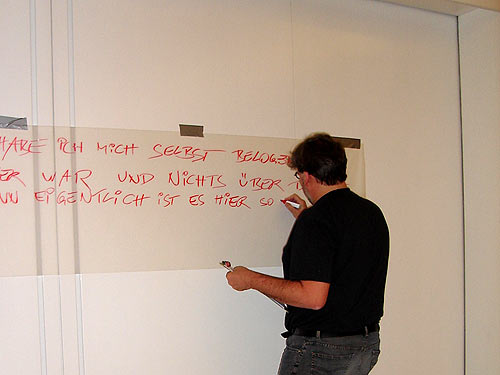 HABE ICH MICH SELBST BELOGEN
ER WAR UND NICHTS ÜBER
NN EIGENTLICH IST ES HIER SO